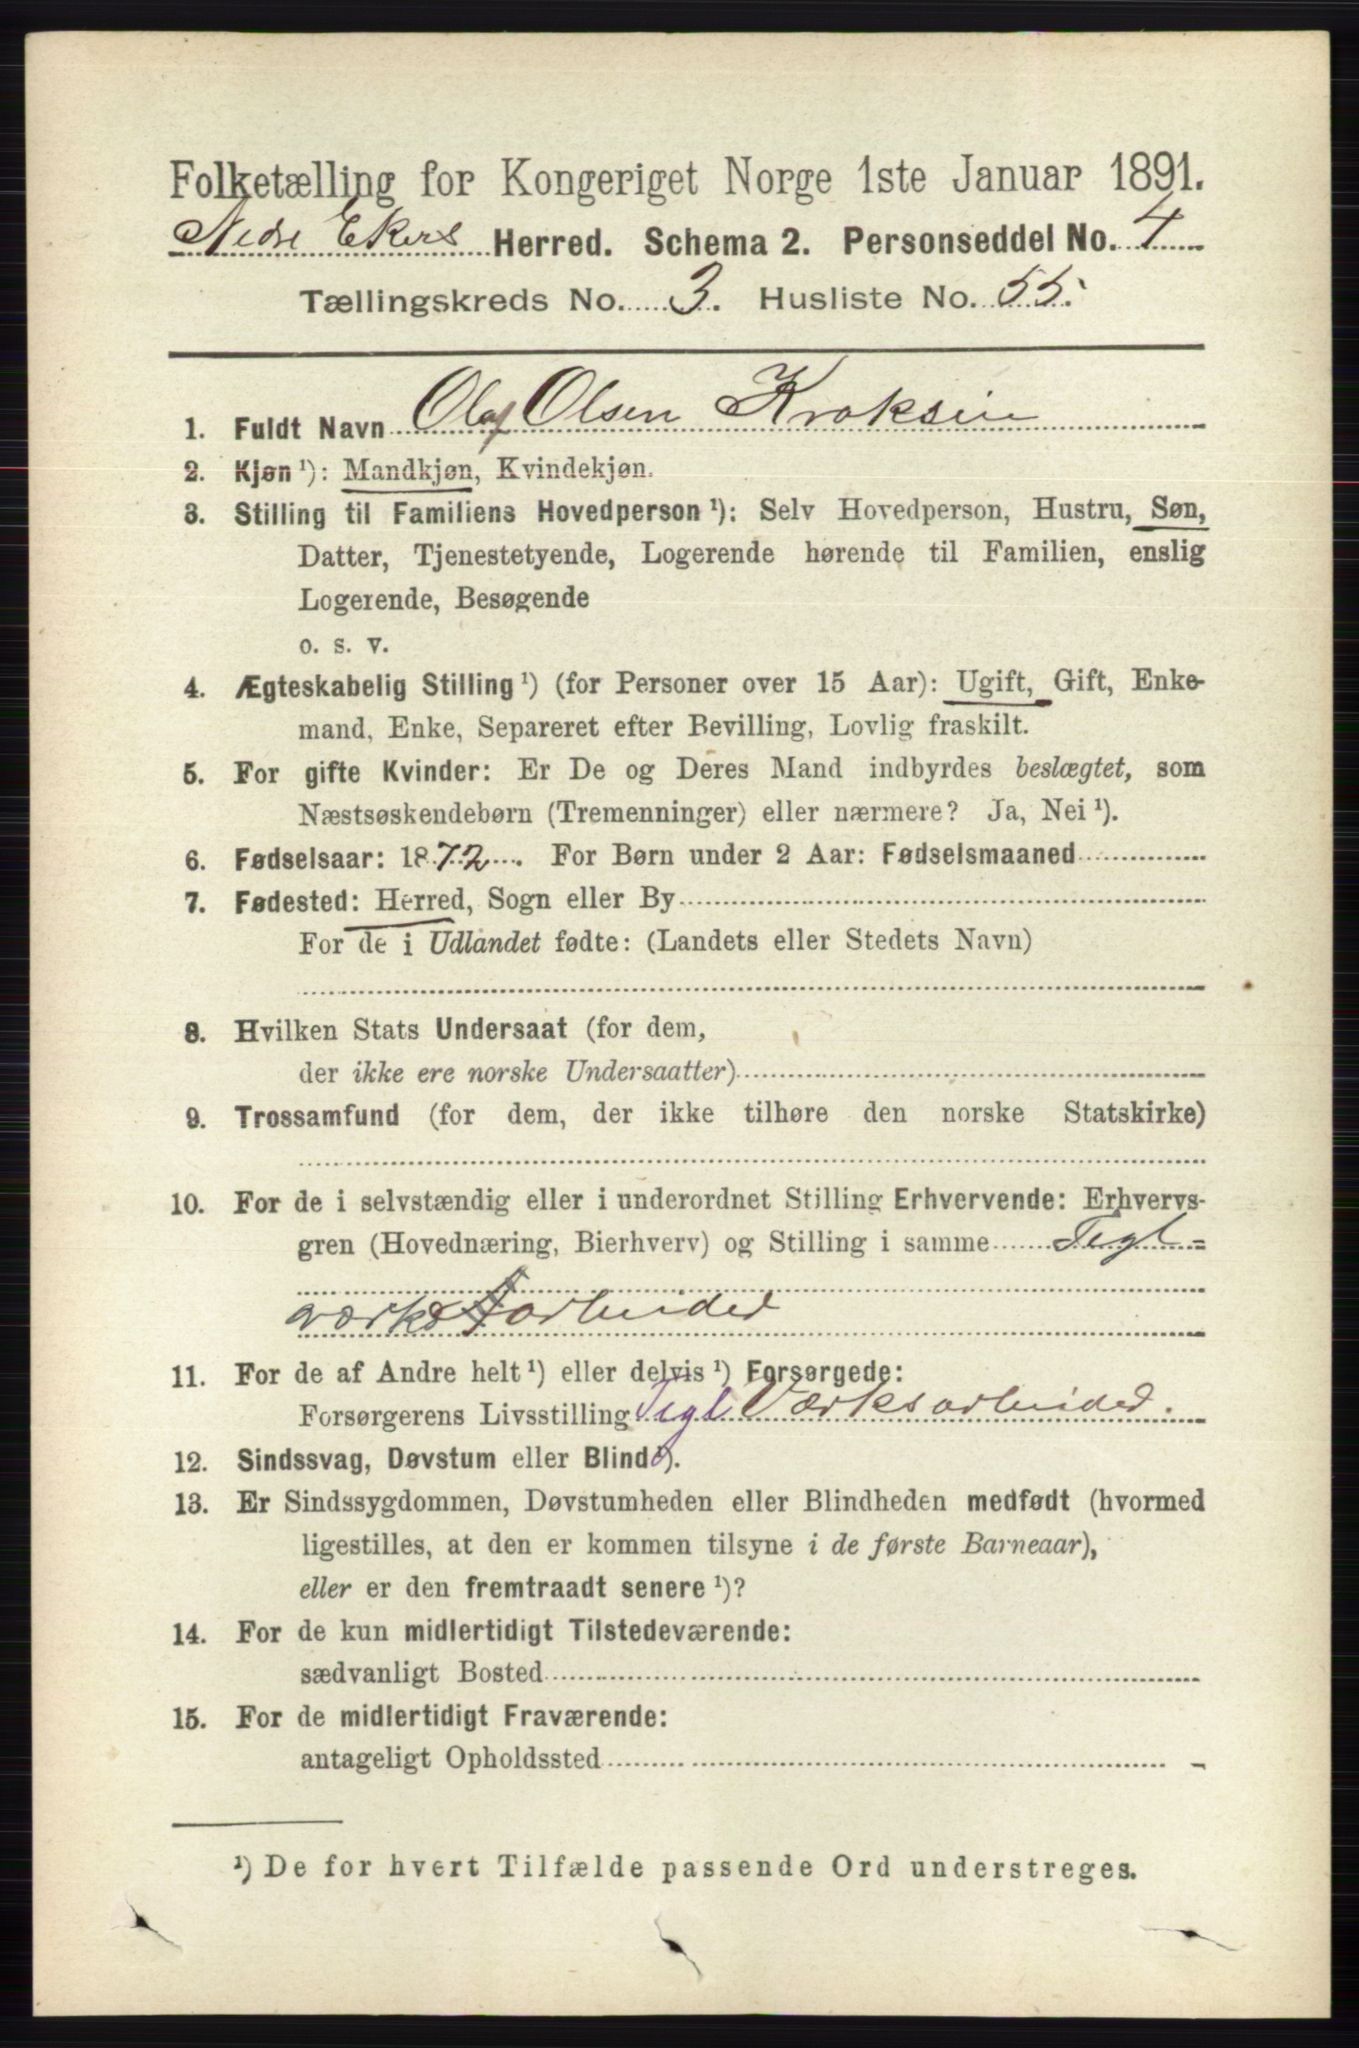 Folketælling for Kongeriget Norge 1ste Januar 1891.
Nedre Ekers Herred. Schema 2. Personseddel No. 4
Tællingskreds No. 3. Husliste No. 55.
1. Fuldt Navn Olaf Olsen Kroksin
2. Kjøn ¹): Mandkjøn, Kvindekjøn.
3. Stilling til Familiens Hovedperson ¹): Selv Hovedperson, Hustru, Søn,
Datter, Tjenestetyende, Logerende hørende til Familien, enslig
Logerende, Besøgende
o. s. v.
4. Ægteskabelig Stilling ¹) (for Personer over 15 Aar): Ugift, Gift, Enke-
mand, Enke, Separeret efter Bevilling, Lovlig fraskilt.
5. For gifte Kvinder: Er De og Deres Mand indbyrdes beslægtet, som
Næstsøskendebørn (Tremenninger) eller nærmere? Ja, Nei ¹).
6. Fødselsaar: 1872. For Børn under 2 Aar: Fødselsmaaned
7. Fødested: Herred, Sogn eller By
For de i Udlandet fødte: (Landets eller Stedets Navn)
8. Hvilken Stats Undersaat (for dem,
der ikke ere norske Undersaatter)
9. Trossamfund (for dem, der ikke tilhøre den norske Statskirke)
10. For de i selvstændig eller i underordnet Stilling Erhvervende: Erhvervs-
gren (Hovednæring, Bierhverv) og Stilling i samme Tegl-
værksarbeider
11. For de af Andre helt ¹) eller delvis ¹) Forsørgede:
Forsørgerens Livsstilling Tegl Værksarbeider.
12. Sindssvag, Døvstum eller Blind ¹).
13. Er Sindssygdommen, Døvstumheden eller Blindheden medfødt (hvormed
ligestilles, at den er kommen tilsyne i de første Barneaar),
eller er den fremtraadt senere ¹)?
14. For de kun midlertidigt Tilstedeværende:
sædvanligt Bosted
15. For de midlertidigt Fraværende:
antageligt Opholdssted
¹) De for hvert Tilfælde passende Ord understreges.